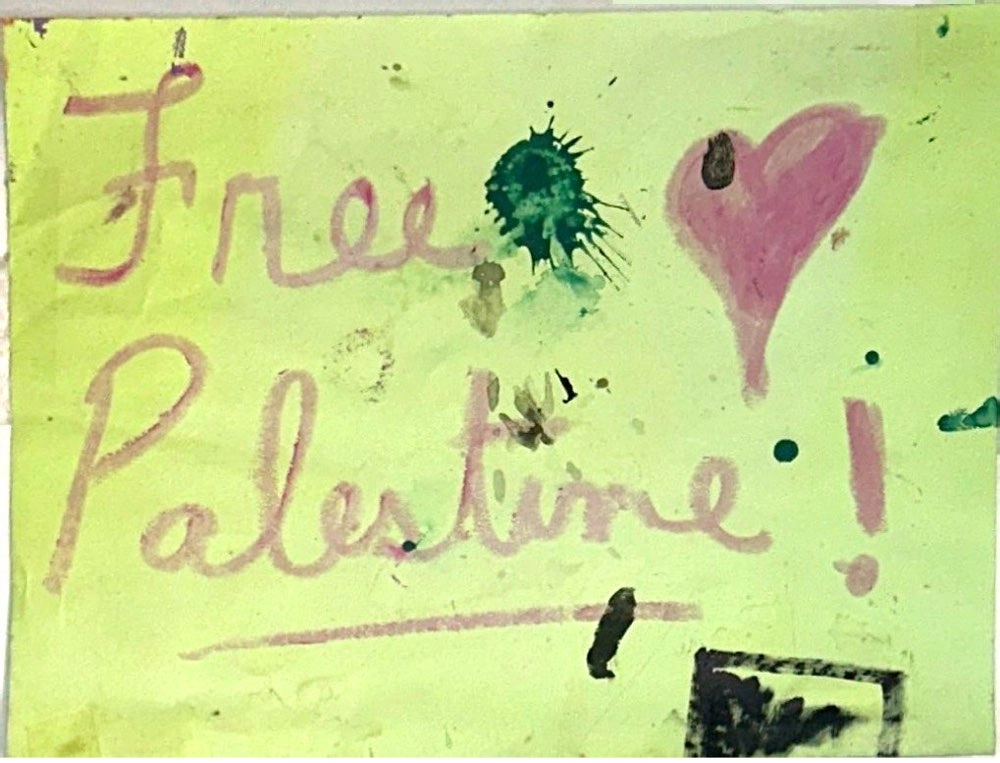 Free
Palestine!